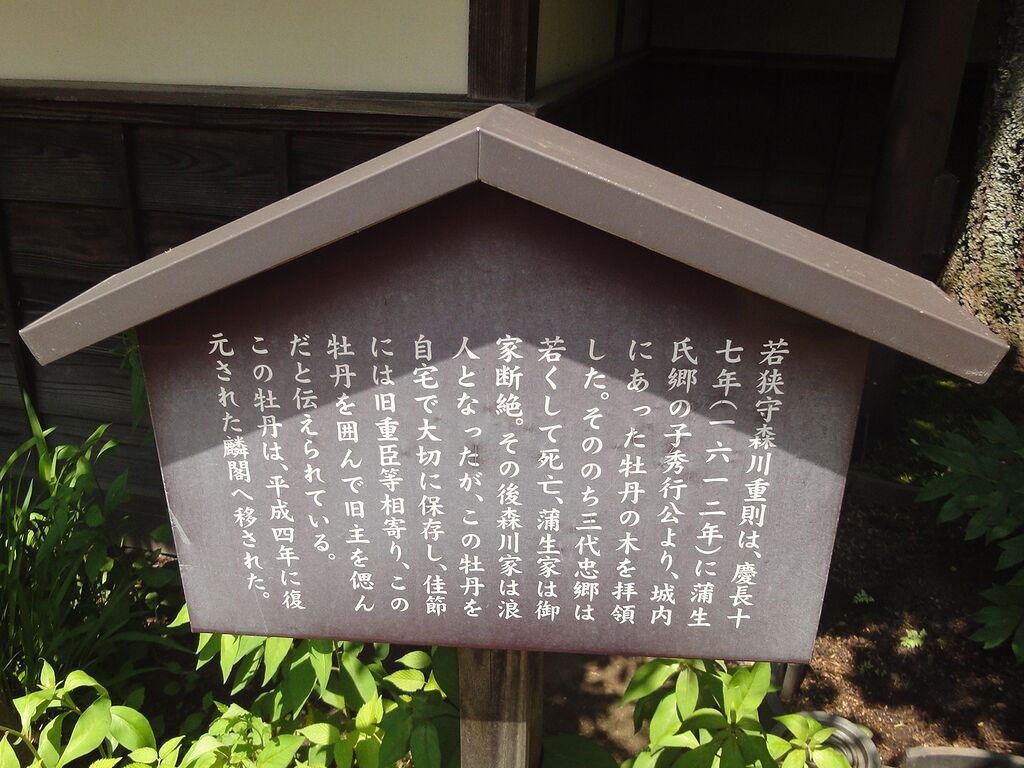 若狭守森川重則は、慶長十
七年(一六一二年)に蒲生
氏郷の子秀行公より、城内
にあった牡丹の木を拝領
した。そののち三代忠郷は
若くして死亡、蒲生家は御
家断絶。その後森川家は浪
人となったが、この牡丹を
自宅で大切に保存し、佳節
には旧重臣等相寄り、この
牡丹を囲んで旧主を偲ん
だと伝えられている。
この牡丹は、平成四年に復
元された麟閣へ移された。